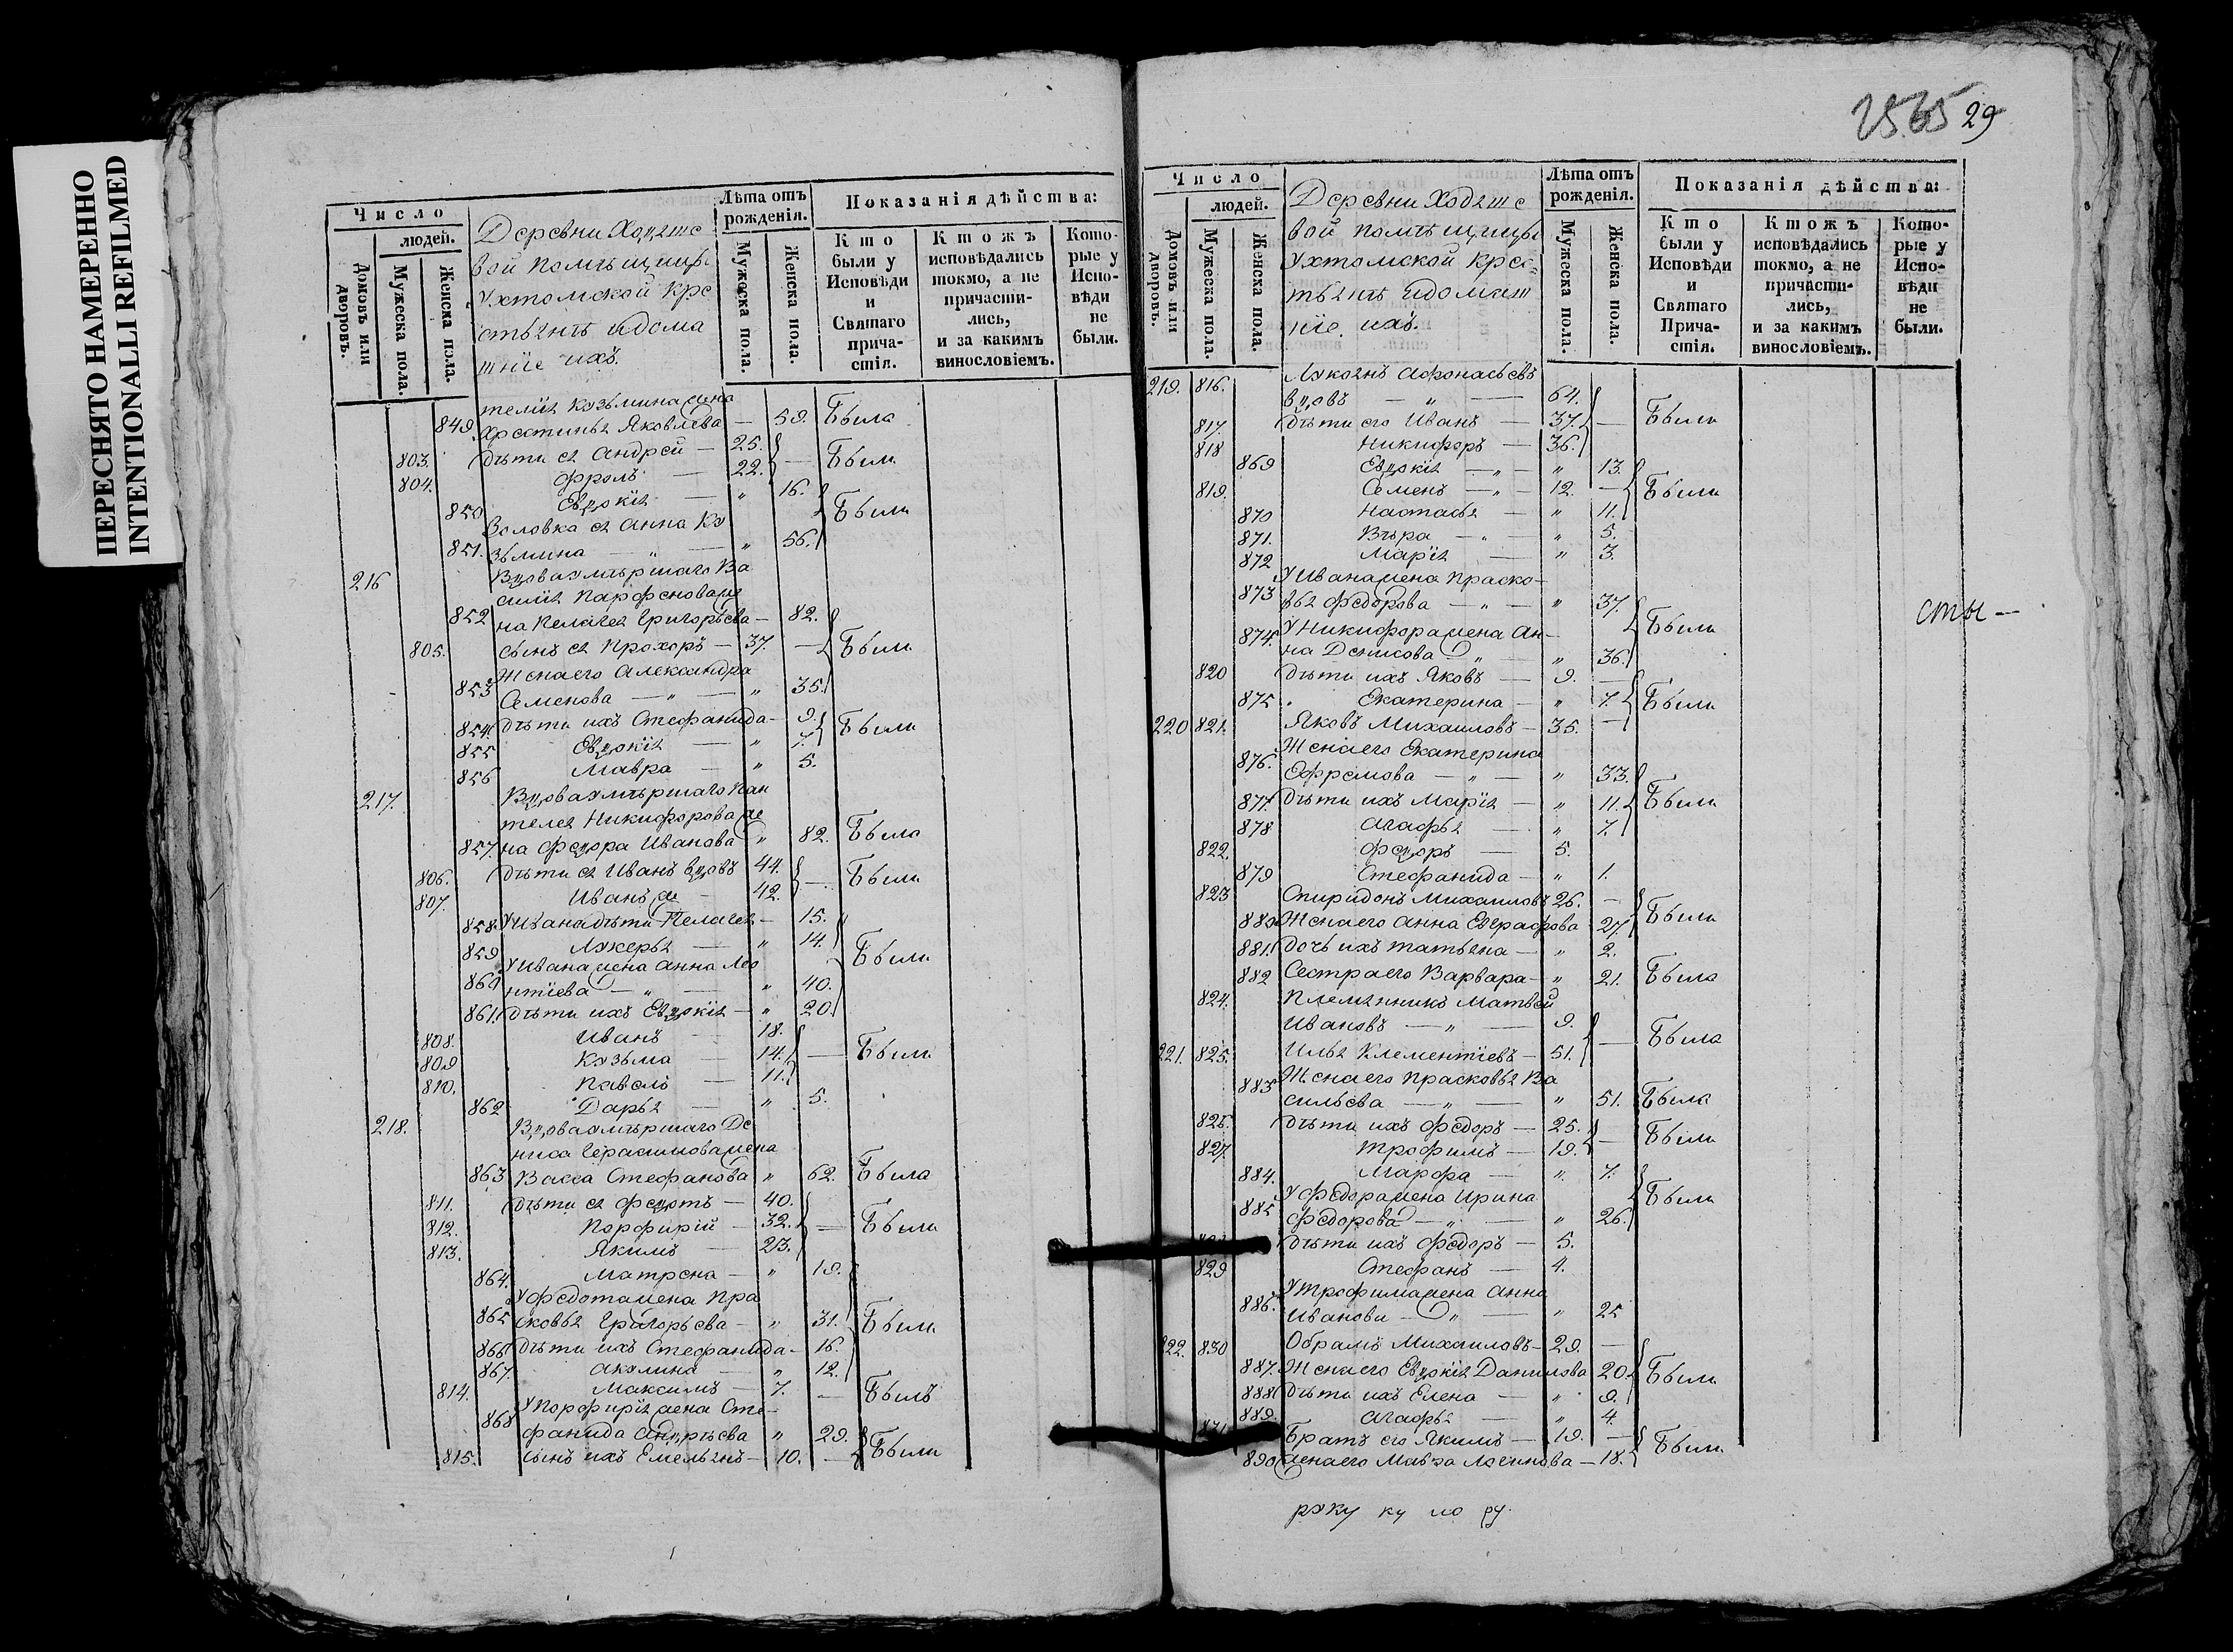 ПЕРЕСНЯТО НАМЕРЕННО
INTENTIONALLI REFILMED
Число
людей.
Домовъ или дворовъ.
Мужеска пола.
Женска пола.
Деревни Ходяше
вой помѣщицы
Ухтомской кре
стьянѣ идома
шніе ихъ.
Лѣта отъ рожденія.
Мужеска пола.
Женска пола.
Показанія дѣйства:
Кто были у Исповѣди и Святаго причастія.
Ктожъ исповѣдались токмо, а не причастились, и за какимъ винословіемъ.
Которые у Исповѣди не были.
телия Козьмина жена
849 Христинья Яковлева — 59. Была
803. Дѣти ея Андрей — 25.
804. Фролъ — 22. — Были
850 Евдокія — " 16.
Золовка ея Анна Ко
851. зьмина — " — " 56. Были
216 Вдова умѣршаго Ва
силия Парфенова же
852 на Пелагея Григорьева — 82.
805. сынъ ея Прохоръ — 37. — Были
Жена его Александра
853 Семенова — " — " 35.
854. Дѣти ихъ Стефанида — 9. Были
855 Евдокія — " 7.
856 Мавра — " 5.
217. Вдова умѣршаго Пан
телея Никифорова же
857. на Федора Иванова " 82. Была
806. Дѣти ея Иванъ вдовъ 44.
807. Иванъ же — 42. — Были
858. У Ивана дѣти Пелагея — 15.
859 Лукерья — " 14.
У Ивана жена Анна Лео
860 нтіева — " — " 40. Были
861. Дѣти ихъ Евдокія — " 20.
808. Иванъ — 18.
809 Козьма — 14. — Были
810. Павелъ — 11.
862 Дарья — " 5.
218. Вдова умѣршаго Де
ниса Герасимова жена
863 Васса Стефанова " 62. Была
811. Дѣти ея Федотъ — 40.
812. Порфирій — 32. — Были
813. Якимъ — 23.
864. Матрена — " 19.
У Федота жена Пра
865 сковья Григорьева — " 31. Были
866 Дѣти ихъ Стефанида — 16.
867. Акулина — " 12.
814. Максимъ — 7. — Былъ
У Порфирія жена Сте-
868 фанида Андрѣева " 29.
815. сынъ ихъ Емельянъ — 10. — Были
2565 29
Число
людей.
Домовъ или дворовъ.
Мужеска пола.
Женска пола.
Деревни Ходяше
вой помѣщицы
Ухтомской крес-
тьянѣ идомаш
ніе ихъ.
Лѣта отъ рожденія.
Мужеска пола.
Женска пола.
Показанія дѣйства:
Кто были у Исповѣди и Святаго Причастія.
Ктожъ исповѣдались токмо, а не причастились, и за какимъ винословіемъ.
Которые у Исповѣди не были.
219. 816. Лукоянъ Афонасьевъ
вдовъ — " — 64.
817. Дѣти его Иванъ — 37. — Были
818 Никифоръ — 36.
869 Евдокія — " — " 13.
819. Семенъ — " — 12. — Были
870 Настасья — " 11.
871. Вѣра — " — " 5.
872 Марія — " 3.
У Ивана жена Праско-
873 вья Федорова — " — " 37.
874. У Никифора жена Ан- Были
на Денисова — " — " 36.
820 Дѣти ихъ Яковъ — 9. —
875 Екатерина — " 7. Были
220 821. Яковъ Михаиловъ — 35. —
Жена его Екатерина
876. Ефремова — " — " 33.
877 Дѣти ихъ Марія — " 11. Были
878 Агафья — " 7.
822. Федоръ — 5.
879 Стефанида — " 1.
823 Спиридонъ Михаиловъ 26. —
880 Жена его Анна Евграфова 27. Были
881. Дочь ихъ Татьяна — " 2.
882 Сестра его Варвара — " 21. Была
824. Племянникъ Матвей
Ивановъ — " — 9.
221. 825. Илья Клементіевъ — 51. — Была
Жена его Прасковья Ва
883 сильева — " — " 51. Была
826. Дѣти ихъ Федоръ — 25.
827. Трофимъ — 19. — Были
884. Марфа — " 7.
У Федора жена Ирина
885 Федорова — " — " 26. Были
Дѣти ихъ Федоръ — 5.
829 Стефанъ — 4.
У Трофима жена Анна
886. Иванови — " — " 25
222. 830 Обрамъ Михаиловъ — 29. —
887. Жена его Евдокія Данилова 20. Были
888 Дѣти ихъ Елена — " 9.
889. Агафья — " 4.
831 Братъ его Якимъ — 19. —
890 жена его Мавра Логинова — 18. Были
сты —